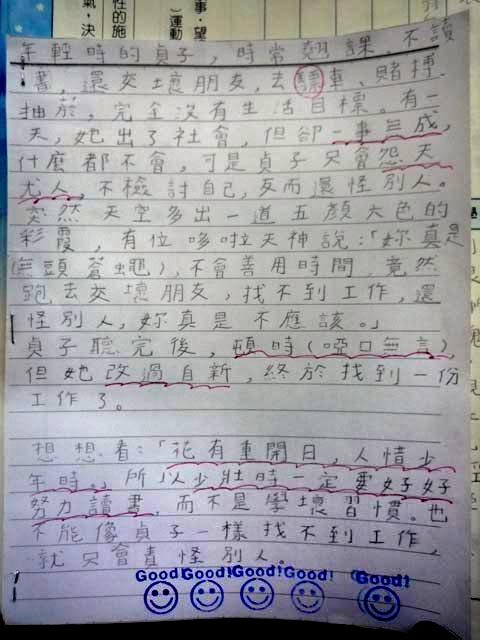 事,望
氣,決
性的施
)運動
年輕時的貞子,時常翹課、不讀
書,還交壞朋友,去飆車、賭博、
抽菸,完全沒有生活目標。有一
天,她出了社會,但卻一事無成,
什麼都不會,可是貞子只會怨天
尤人,不檢討自己,反而還怪別人。
突然天空多出一道五顏六色的
彩霞,有位哆啦天神說:「妳真是
(無頭蒼蠅),不會善用時間,竟然
跑去交壞朋友,找不到工作,還
怪別人,妳真是不應該。」
貞子聽完後,頓時(啞口無言),
但她改過自新,終於找到一份
工作了。
想想看:「花有重開日,人惜少
年時。」所以少壯時一定要好好
努力讀書,而不是學壞習慣。也
不能像貞子一樣找不到工作,
就只會責怪別人。
Good! Good! Good! Good! Good!